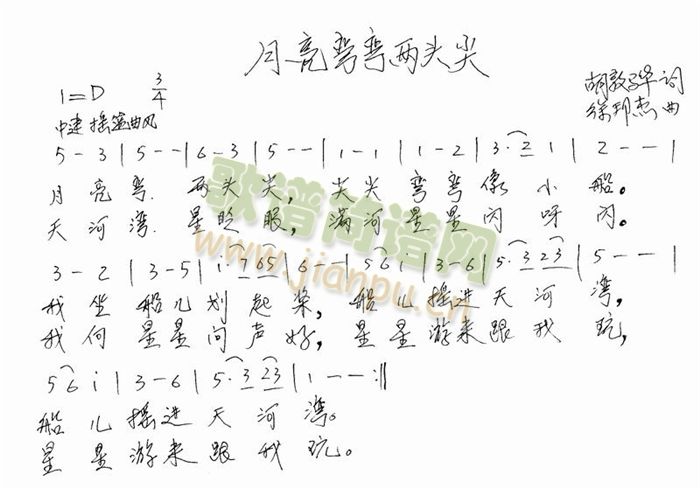 月亮弯弯两头尖
1=D 3/4
胡敦骅 词
中速 摇篮曲风
徐邦杰 曲
5 - 3 | 5 - - | 6 - 3 | 5 - - | 1 - 1 | 1 - 2 | 3 · 2 1 | 2 - - |
月 亮 弯. 两头尖, 尖尖 弯弯像 小 船。
天 河 湾. 星眨眼, 满河 星星闪 呀 闪。
歌谱简谱网
www.jianpu.cn
3 - 2 | 3 - 5 | i · 6 5 | 6 - - | 5 6 i | 3 - 6 | 5 · 3 2 3 | 5 - - |
我 坐 船儿划 起 桨, 船儿摇进天 河 湾,
我 向 星星问 声 好, 星星游来跟 我 玩,
5 6 i | 3 - 6 | 5 · 3 2 3 | 1 - - :||
船 儿 摇进 天 河 湾。
星 星 游来 跟 我 玩。